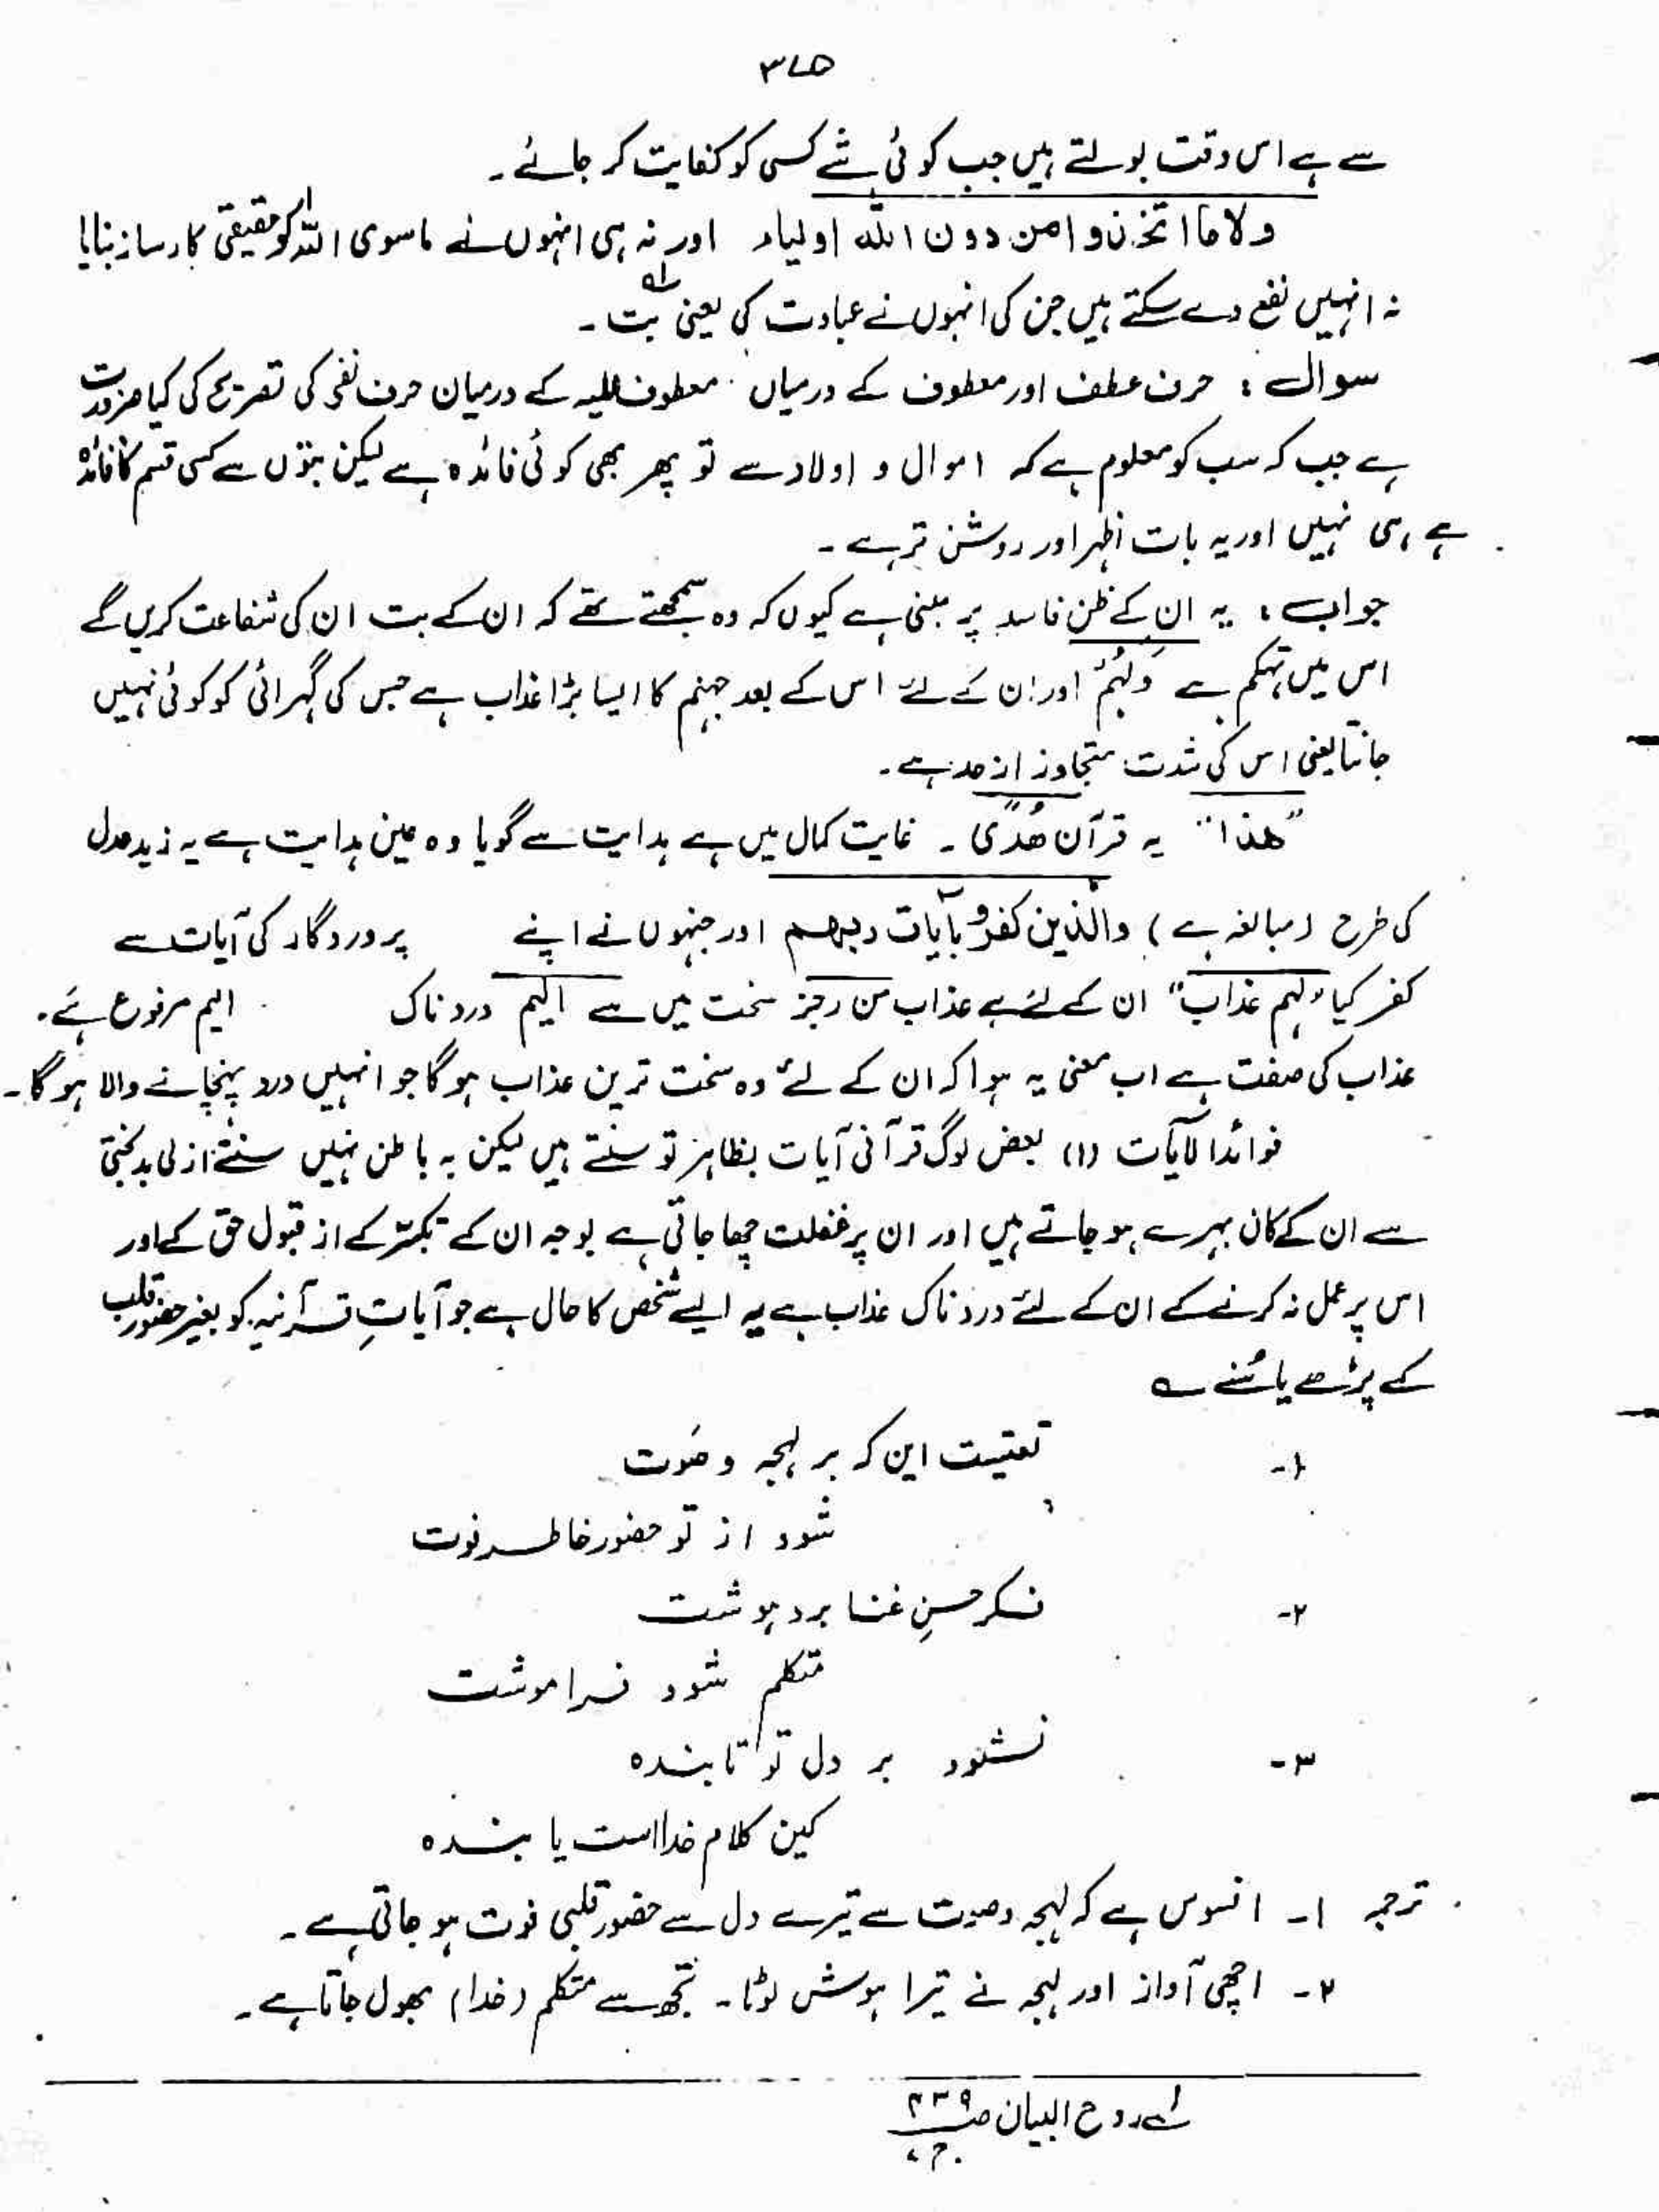 ۳۷۵
سے ہے اس وقت بولتے ہیں جب کوئی شے کسی کو کفایت کر جائے ۔
ولا ما اتخذوا من دون الله اولیاء اور نہ ہی انہوں نے ماسوی اللہ کو حقیقی کارساز بنایا
نہ انہیں نفع دے سکتے ہیں جن کی انہوں نے عبادت کی یعنی بت ۔
سوال : حرف عطف اور معطوف کے درمیاں معطوف علیہ کے درمیان حرف نفی کی تصریح کی کیا ضرورت
ہے جب کہ سب کو معلوم ہے کہ اموال و اولاد سے تو پھر بھی کوئی فائدہ ہے لیکن بتوں سے کسی قسم کا فائدہ
ہے ہی نہیں اور یہ بات اظہر اور روشن تر ہے ۔
جواب : یہ ان کے ظن فاسد پر مبنی ہے کیوں کہ وہ سمجھتے تھے کہ ان کے بت ان کی شفاعت کریں گے
اس میں تہکم ہے وَلَہُمْ اور ان کے لئے اس کے بعد جہنم کا ایسا بڑا عذاب ہے جس کی گہرائی کو کوئی نہیں
جانتا یعنی اس کی شدت متجاوز از حد ہے ۔
"ھذا" یہ قرآن ھُدًی ۔ غایت کمال میں ہے ہدایت سے گویا وہ عین ہدایت ہے یہ زید عدل
کی طرح (مبالغہ ہے) والذین کفروا بآیات ربھم اور جنہوں نے اپنے پروردگار کی آیات سے
کفر کیا "ولہم عذاب" ان کے لئے ہے عذاب من رجز سخت میں سے الیم درد ناک الیم مرفوع ہے ۔
عذاب کی صفت ہے اب معنی یہ ہوا کہ ان کے لئے وہ سخت ترین عذاب ہو گا جو انہیں درد پہنچانے والا ہو گا ۔
فوائد الآیات (۱) بعض لوگ قرآنی آیات بظاہر تو سنتے ہیں لیکن بہ باطن نہیں سنتے ازلی بدبختی
سے ان کے کان بہرے ہو جاتے ہیں اور ان پر غفلت چھا جاتی ہے بوجہ ان کے تکبّر کے از قبول حق کے اور
اس پر عمل نہ کرنے کے ان کے لئے درد ناک عذاب ہے یہ ایسے شخص کا حال ہے جو آیاتِ قرآنیہ کو بغیر حضور قلب
کے پڑھے یا سُنے ؎
۱- تعتیست این کہ بر لہجہ و صَوت
شود از تو حضور خاطر فوت
۲- فکر حسنِ غنا برد ہوشت
متکلم شود فراموشت
۳- نشود بر دل تو تابندہ
کین کلام خدااست یا بندہ
ترجمہ ۱- افسوس ہے کہ لہجہ وصوت سے تیرے دل سے حضور قلبی فوت ہو جاتی ہے ۔
۲- اچھی آواز اور لہجہ نے تیرا ہوش لوٹا ۔ تجھ سے متکلم (خدا) بھول جاتا ہے ۔
لے روح البیان صـ ۴۳۹